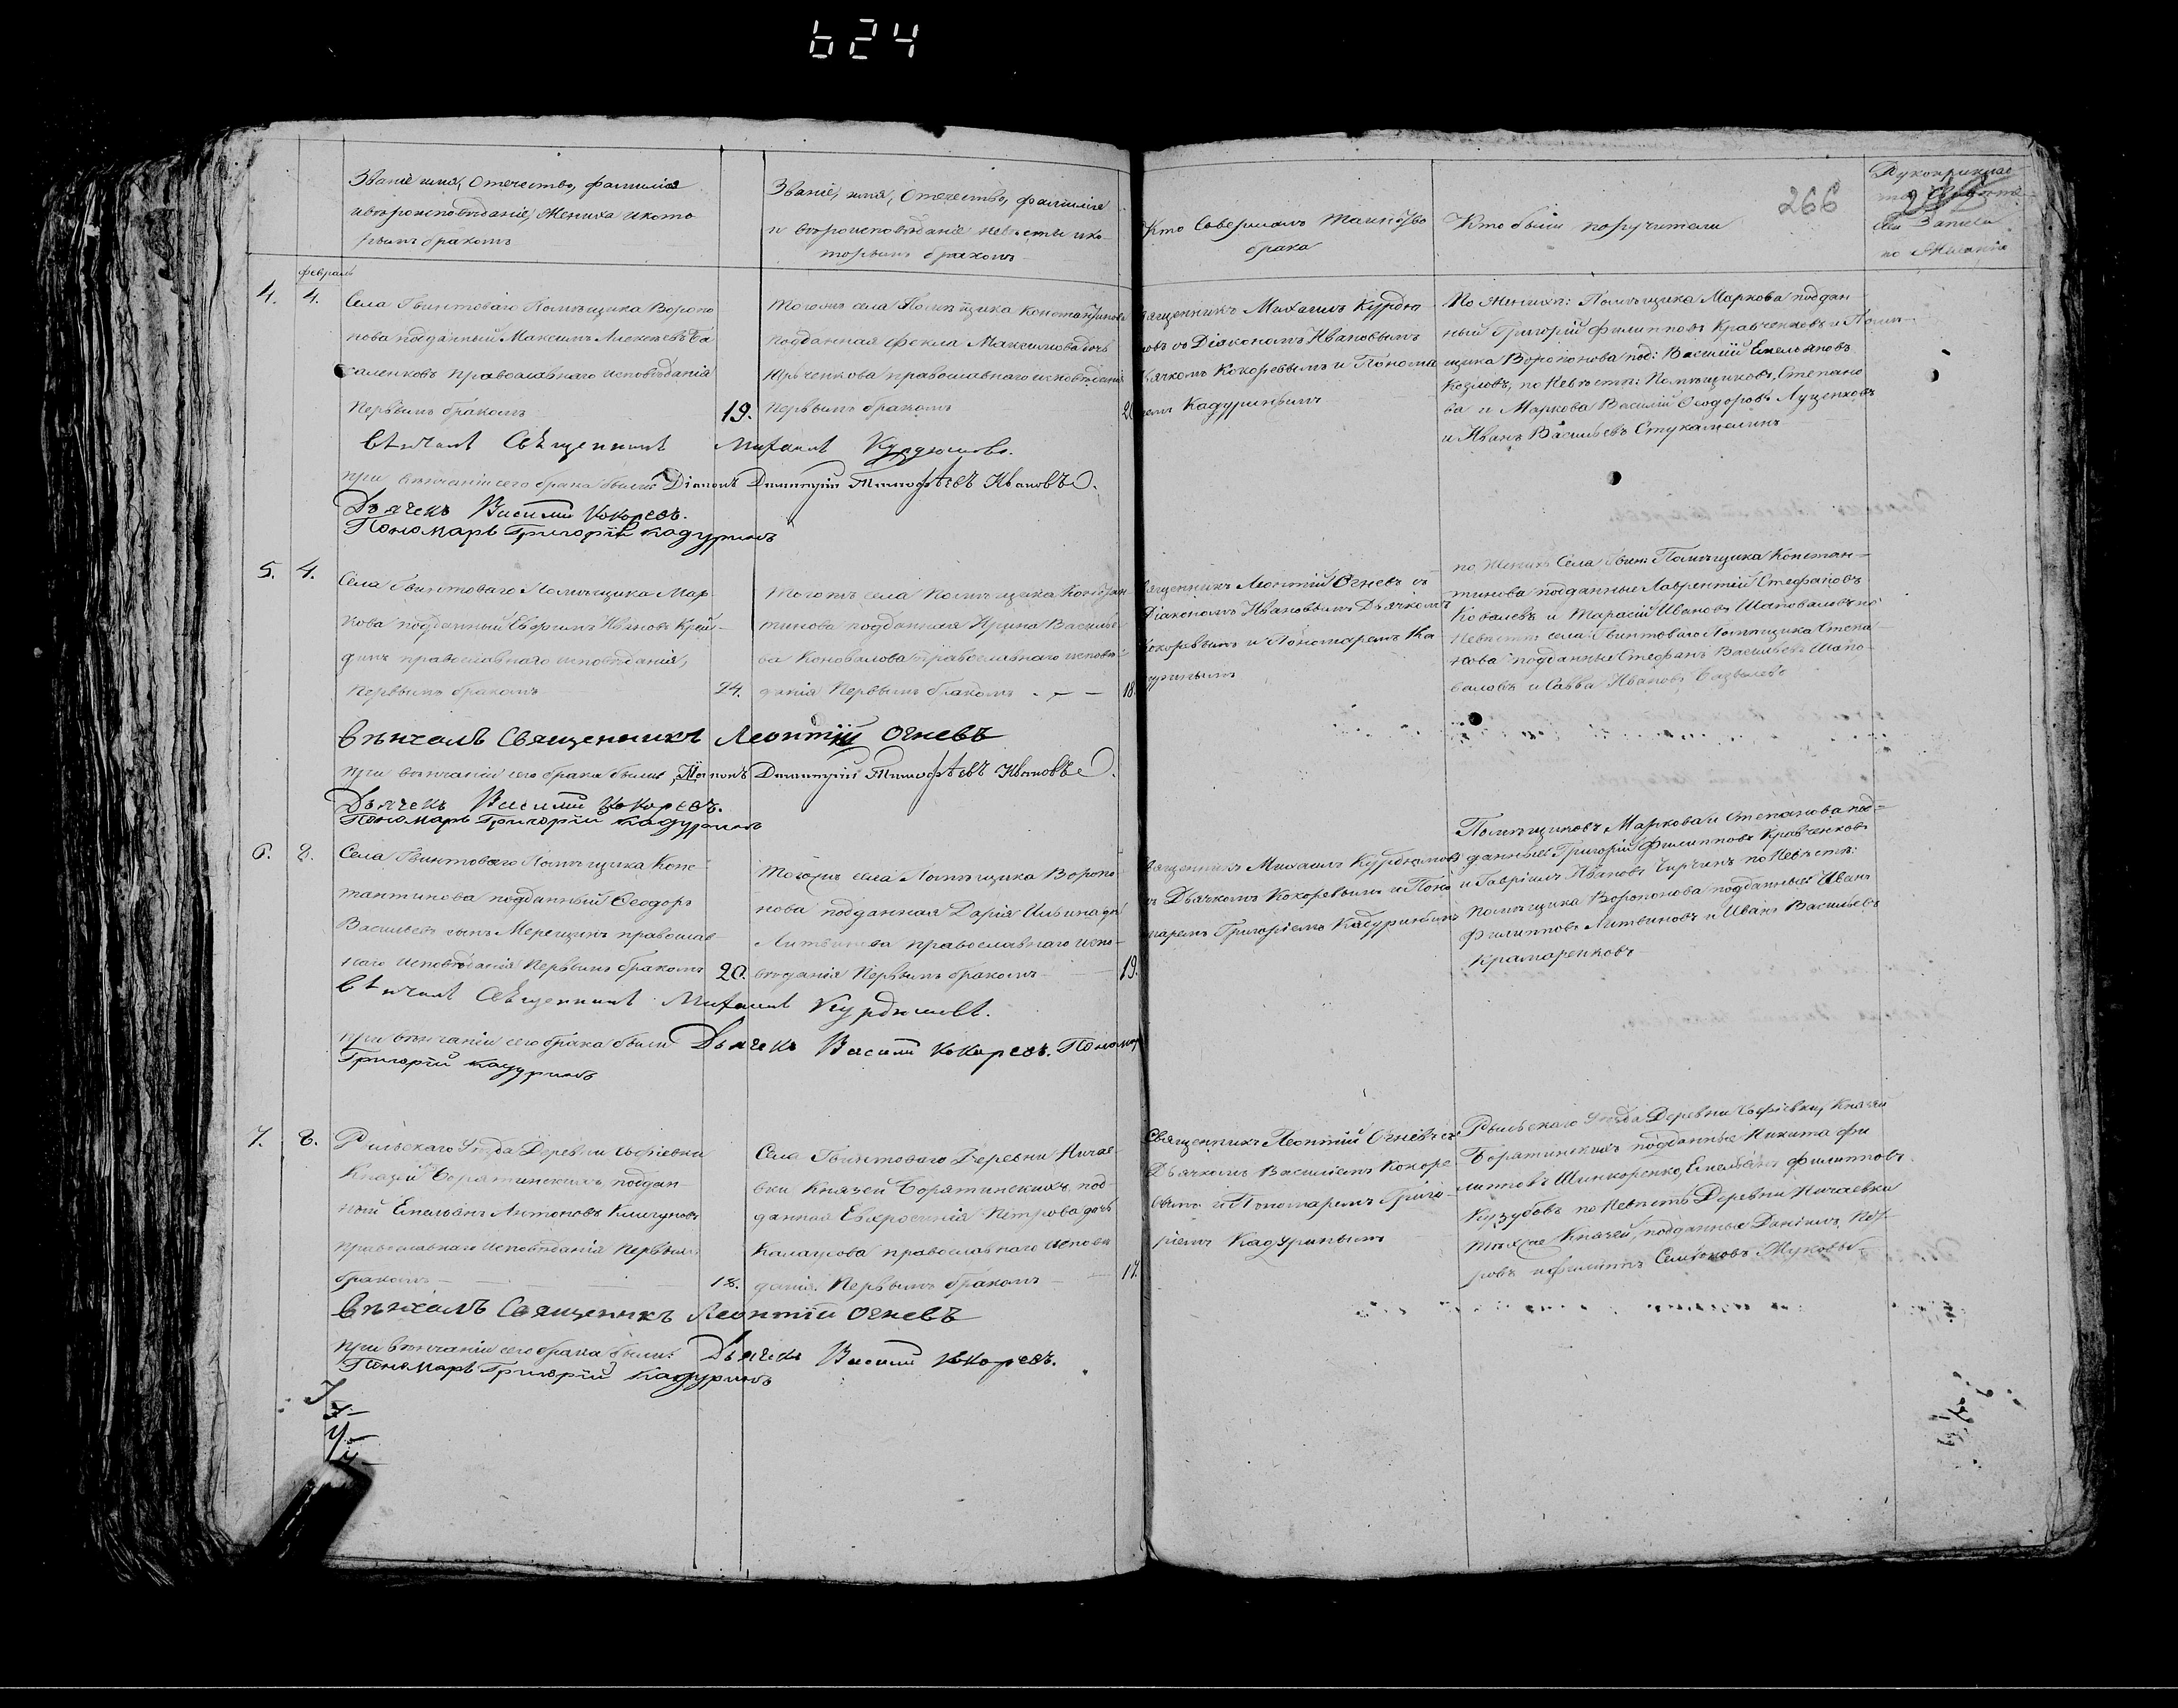 624
266
Званіе имя, Отечество, фамилія
и вѣроисповѣданіе, Жениха и кото
рымъ бракомъ
Званіе, имя, Отечество, фамилія
и вѣроисповѣданіе невѣсты и ко
торымъ бракомъ
Кто Совершалъ таинство
брака
Кто были поручители
Рукоприклад
по Желанію
февраль
4. 4.
Села Гвинтоваго Помѣщика Воропо
нова подданный Максимъ Алексѣевъ
православнаго исповѣданія
Первымъ бракомъ 19.
тогожъ села Помѣщика Константинова
подданная Фекла Максимова дочь
Юрченкова православнаго исповѣданія
Первымъ бракомъ
Священникъ Михаилъ Курдю
мовъ съ Діакономъ Ивановымъ
Дьячкомъ Кокоревымъ и Понома
ремъ Кадуринымъ
По Женихѣ: Помѣщика Маркова поддан
ный Григорій Филипповъ Кравченковъ и Помѣ
щика Воропонова под: Василій Емельяновъ
Козловъ, по Невѣстѣ: Помѣщиковъ, Степано
ва и Маркова Василій Ѳеодоровъ Луценковъ
и Иванъ Васильевъ
вѣнчалъ Священникъ Михаилъ Курдюмовъ.
при вѣнчаніи сего брака были: Діаконъ Димитрій Тимофѣевъ Ивановъ.
Дьячекъ Василій Кокоревъ.
Пономарь Григорій Кадуринъ
5. 4.
Села Гвинтоваго Помѣщика Мар
кова подданный Ефимъ Ивановъ
православнаго исповѣданія,
Первымъ бракомъ 24.
тогожъ села Помѣщика Констан
тинова подданная Ирина Василье
ва Коновалова православнаго исповѣ
данія Первымъ бракомъ 18.
Священникъ Леонтій Огневъ съ
Діакономъ Ивановымъ Дьячкомъ
Кокоревымъ и Пономаремъ Ка
дуринымъ
по Женихѣ Села Гвин: Помѣщика Констан
тинова подданные Лаврентій Стефановъ
Ковалевъ и Тарасій Ивановъ Шаповаловъ по
Невѣстѣ села Гвинтоваго Помѣщика Степа
нова подданные Стефанъ Васильевъ Шапо
валовъ и Савва Ивановъ
вѣнчалъ Священникъ Леонтій Огневъ
при вѣнчаніи сего брака были Діаконъ Димитрій Тимофѣевъ Ивановъ.
Дьячекъ Василій Кокоревъ.
Пономарь Григорій Кадуринъ
6. 8.
Села Гвинтоваго Помѣщика Конс
тантинова подданный Ѳеодоръ
Васильевъ сынъ Мерещинъ православ
наго исповѣданія Первымъ бракомъ 20.
Тогожъ села Помѣщика Воропо
нова подданная Дарія Ильина до
Литвинова православнаго испо
вѣданія Первымъ бракомъ 19.
Священникъ Михаилъ Курдюмовъ
съ Дьячкомъ Кокоревымъ и Поно
маремъ Григоріемъ Кадуринымъ
Помѣщиковъ Маркова и Степанова под
данные Григорій Филипповъ Кравченковъ
и Гавріилъ Ивановъ по Невѣстѣ:
Помѣщика Воропонова подданные Иванъ
Филипповъ Литвиновъ и Иванъ Васильевъ
Крамаренковъ
вѣнчалъ Священникъ Михаилъ Курдюмовъ.
при вѣнчаніи сего брака были Дьячекъ Василій Кокоревъ. Пономарь
Григорій Кадуринъ
7. 8.
Рыльскаго Уѣзда Деревни Софіевки
Князей Борятинскихъ, поддан
ный Емельянъ Антоновъ
православнаго исповѣданія Первымъ
бракомъ 18.
Села Гвинтоваго Деревни Ничае
вки Князей Борятинскихъ под
данная Евфросинія Петрова дочь
Калаусова православнаго исповѣ
данія. Первымъ бракомъ 17.
Священникъ Леонтій Огневъ съ
Дьячкомъ Василіемъ Кокоре
вымъ и Пономаремъ Григо
ріемъ Кадуринымъ
Рыльскаго Уѣзда Деревни Софіевки, Князей
Борятинскихъ подданные Никита Фи
липповъ Шинкоренко, Емельянъ Филипповъ
Кузубовъ по Невѣстѣ Деревни Ничаевки
тѣхже Князей, подданные Даніилъ Пет
ровъ и Филиппъ Семіоновъ Жуковы
вѣнчалъ Священникъ Леонтій Огневъ
при вѣнчаніи сего брака были: Дьячекъ Василій Кокоревъ.
Пономарь Григорій Кадуринъ